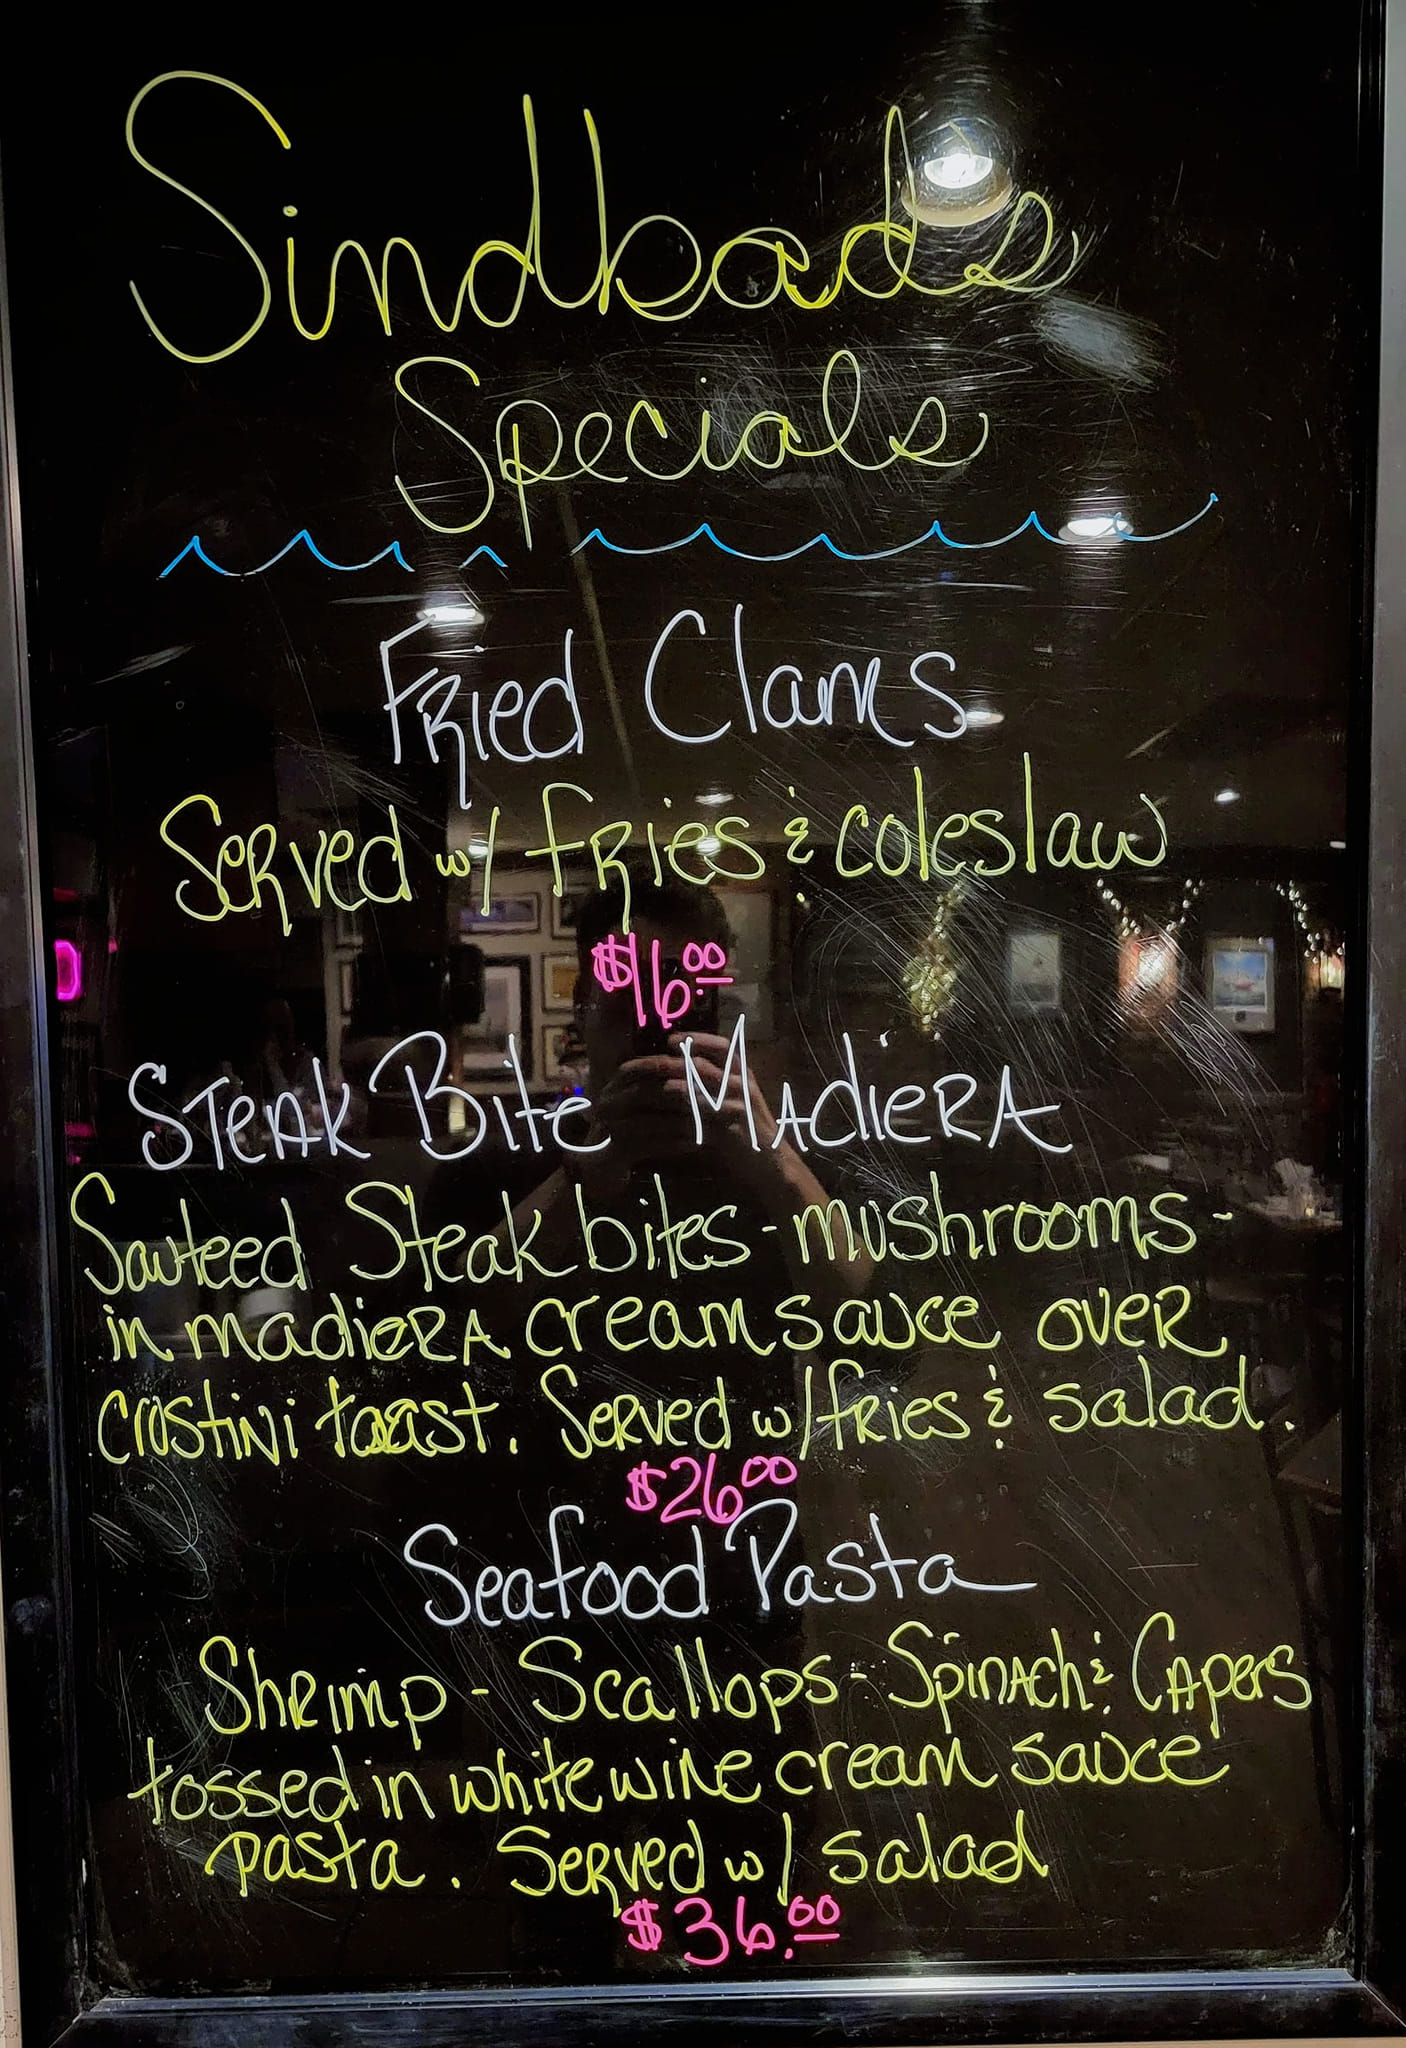 Sindbads
Specials
Fried Clams
Served w/ fries & coleslaw
$16.00
Steak Bite Madiera
Sauteed Steak bites - mushrooms -
in madiera cream sauce over
crostini toast. Served w/ fries & salad.
$26.00
Seafood Pasta
Shrimp - Scallops - Spinach & Capers
tossed in white wine cream sauce
pasta. Served w/ salad
$36.00